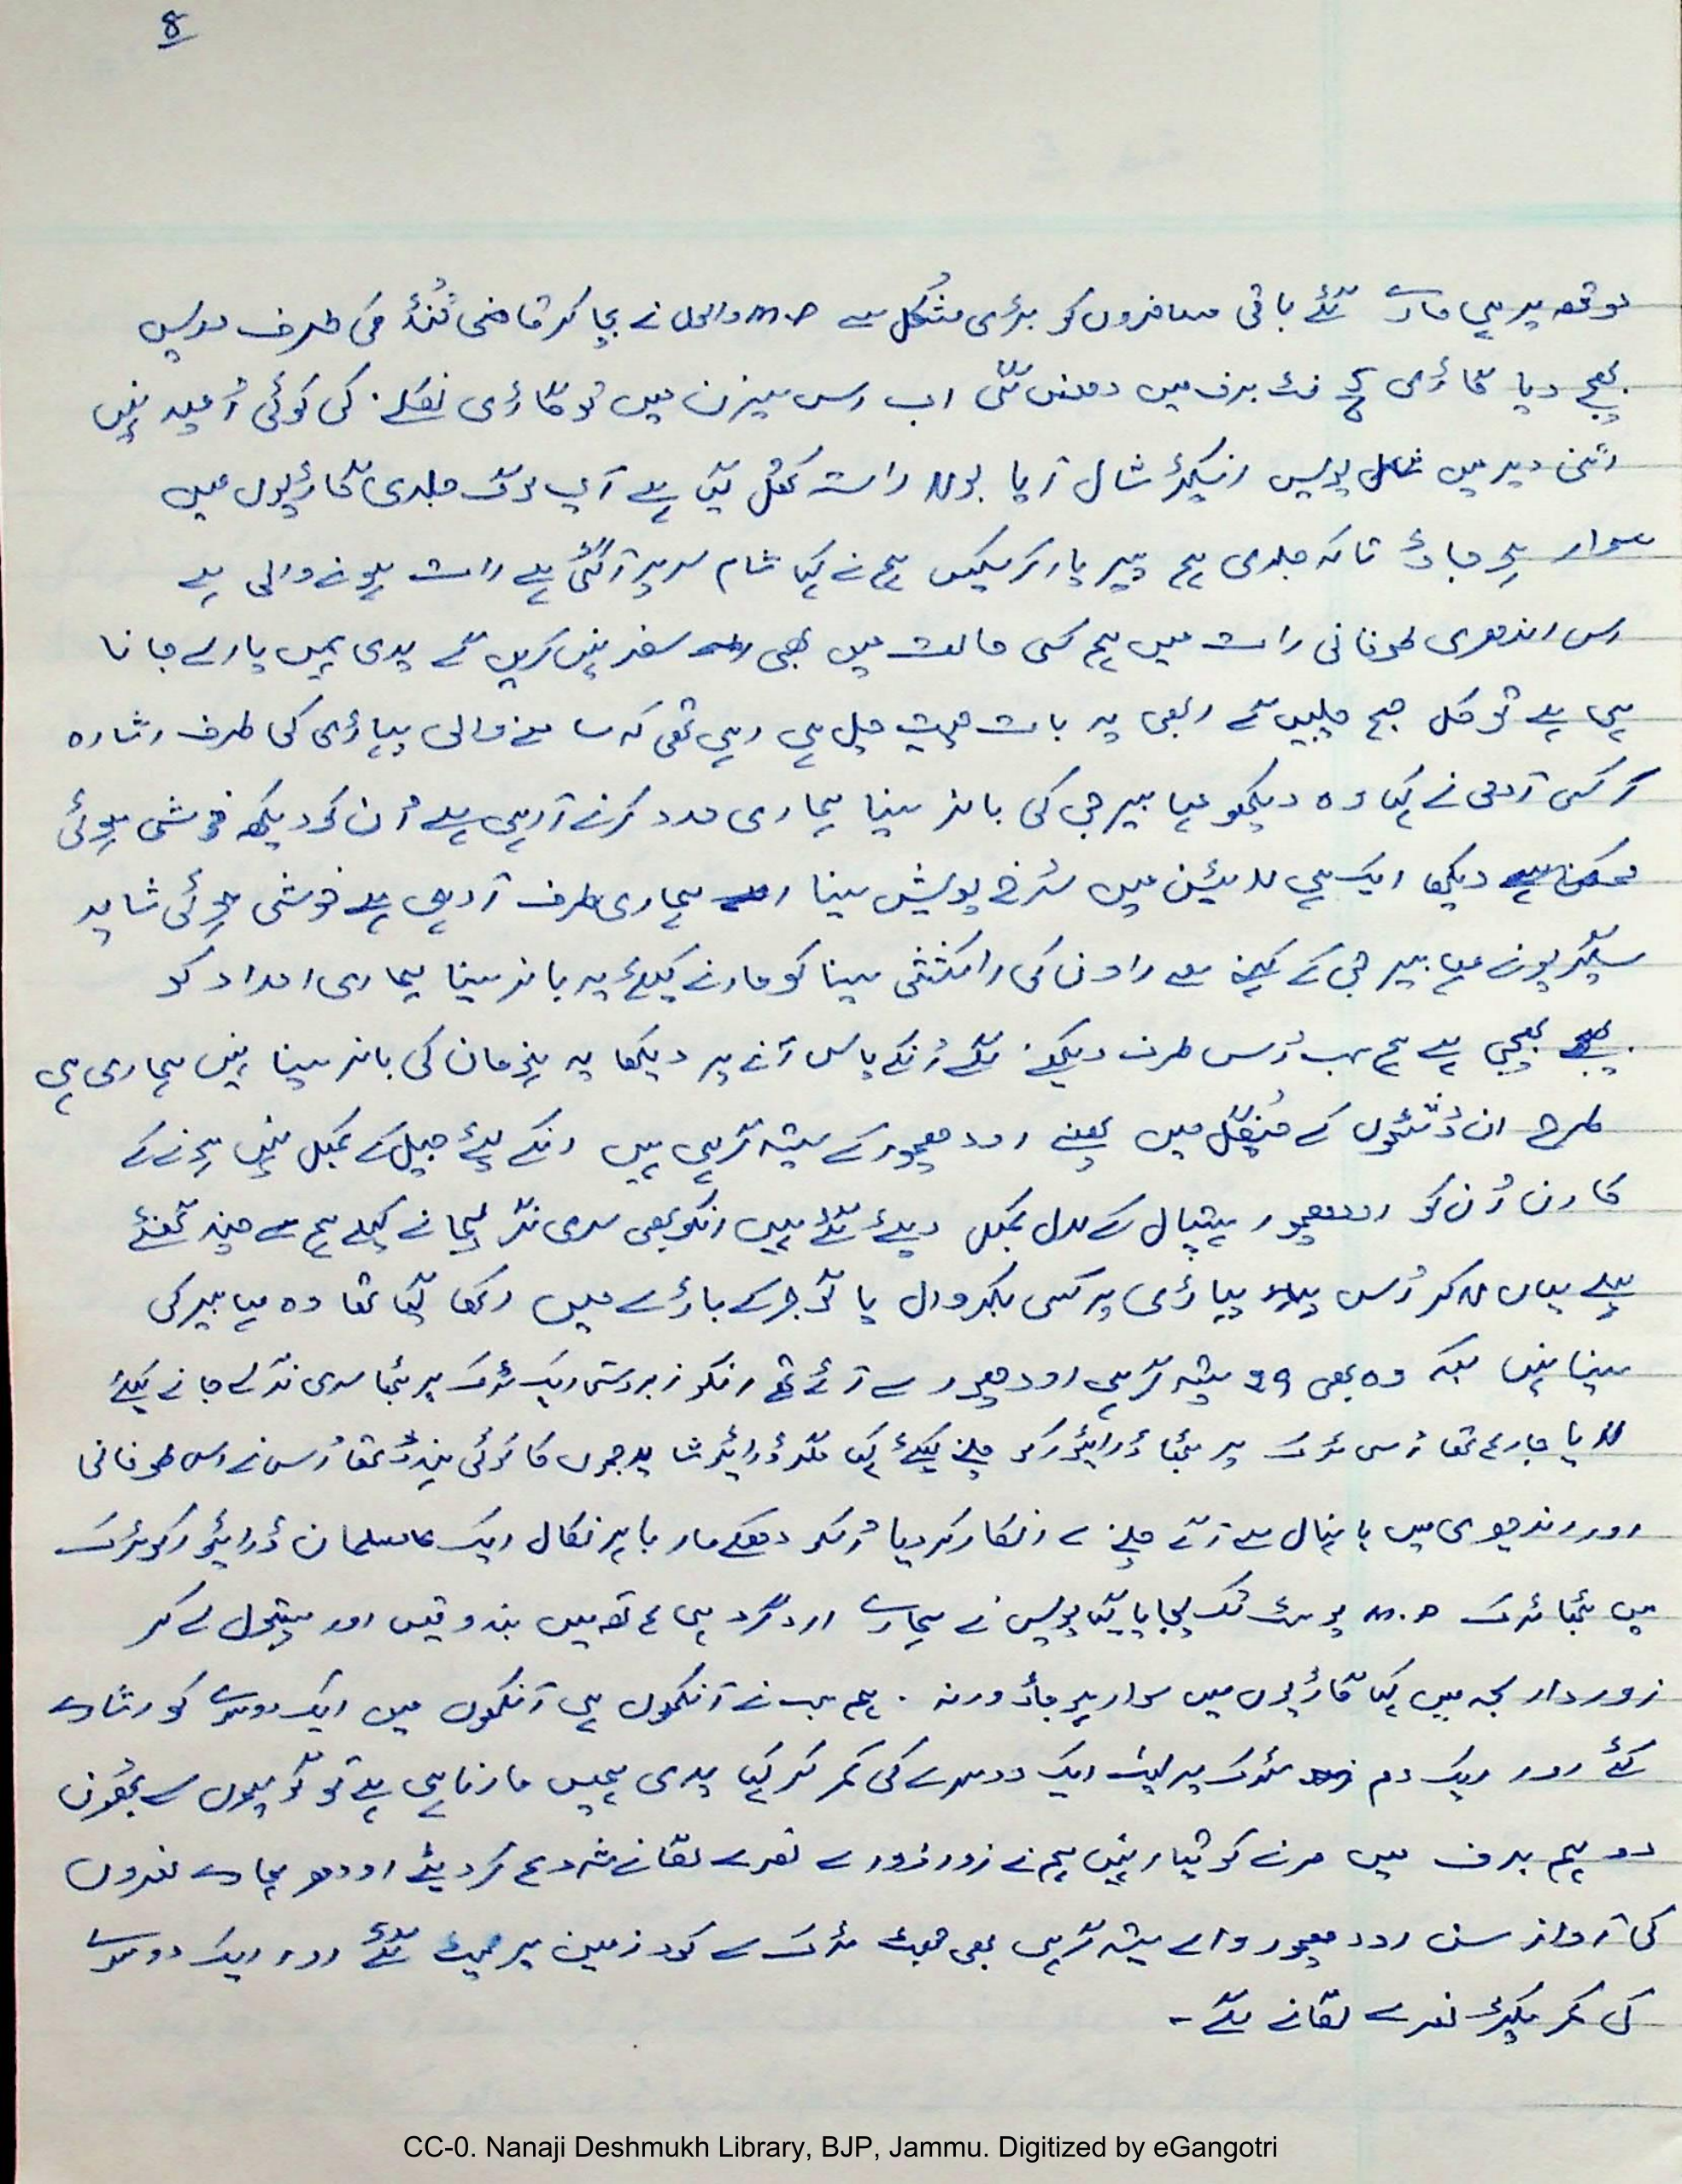 8
موقعہ پر ہی مارے گئے باقی مسافروں کو بڑی مشکل سے m.p والوں نے بچا کر قاضی کُنڈ کی طرف واپس
بھیج دیا گاڑی کچھ فٹ برف میں دھنس گئی اب اس سیزن میں تو گاڑی نکلنے کی کوئی اُمید نہیں
اتنی دیر میں پولیس انسپکٹر شال آیا بولا راستہ کھُل گیا ہے آپ لوگ جلدی گاڑیوں میں
سوار ہو جاؤ تاکہ جلدی ہم پیر پار کر سکیں ہم نے کہا شام سر پر آ گئی ہے رات ہونے والی ہے
اس اندھری طوفانی رات میں ہم کسی حالت میں بھی سفر نہیں کریں گے یدی ہمیں پارلے جانا
ہی ہے تو کل صبح چلیں گے ابھی یہ بات چیت چل ہی رہی تھی کہ سامنے والی پہاڑی کی طرف اشارہ
کر کسی آدمی نے کہا وہ دیکھو مہابیر جی کی بانر سینا ہماری مدد کرنے آ رہی ہے اُن کو دیکھ خوشی ہوئی
دیکھا ایک ہی لائین میں سُرخ پوش سینا ہماری طرف آ رہی ہے خوشی ہوئی شاید
سگریو نے مہابیر جی کے کہنے سے راون کی راکششی سینا کو مارنے کیلئے یہ بانر سینا ہماری امداد کو
بھیجی ہے ہم سب اُس طرف دیکھنے لگے اُنکے پاس آنے پر دیکھا یہ ہنومان کی بانر سینا نہیں ہماری ہی
طرح ان دُشٹوں کے چُنگل میں پھنسے اودھمپور کے ستیہ گرہی ہیں انکے لئے جیل کے کمبل نہیں ہونے کے
کارن اُن کو اودھمپور ہسپتال کے لال کمبل دیئے گئے ہیں انکو بھی سری نگر لیجانے کیلے ہم سے چند گھنٹے
پہلے یہاں لا کر اُس پہاڑی پر کسی بکروال یا گوجر کے باڑے میں رکھا گیا تھا وہ مہابیر کی
سینا نہیں بلکہ وہ بھی 29 ستیہ گرہی اودھمپور سے آئے تھے انکو زبردستی ایک ٹرک پر بٹھا سری نگر لے جانے کیلئے
لایا جا رہا تھا اُس ٹرک پر بٹھا ڈرائیور کو چلنے کیلئے کہا مگر ڈرائیور شاید جموں کا کوئی ہندو تھا اُس نے اس طوفانی
اور اندھیری میں بانہال سے آگے چلنے سے انکار کر دیا اُسکو دھکے مار باہر نکال ایک مسلمان ڈرائیور کو ٹرک
میں بٹھا ٹرک m.p پوسٹ تک لیجایا گیا پولیس نے ہمارے اردگرد ہی ہاتھ میں بندوقیں اور پستول لے کر
زوردار لہجہ میں کہا گاڑیوں میں سوار ہو جاؤ ورنہ ۔ ہم سب نے آنکھوں ہی آنکھوں میں ایک دوسرے کو اشارے
کئے اور ایک دم سڑک پر لیٹ ایک دوسرے کی کمر کر کہا یدی ہمیں مارنا ہی ہے تو گولیوں سے بھون
دو ہم برف میں مرنے کو تیار نہیں ہم نے زور زور سے نعرے لگانے شروع کر دیئے اودھر ہمارے نعروں
کی آواز سن اودھمپور والے ستیہ گرہی بھی جھٹ ٹرک سے کود زمین پر لیٹ گئے اور ایک دوسرے
کی کمر پکڑ نعرے لگانے لگے -
CC-0. Nanaji Deshmukh Library, BJP, Jammu. Digitized by eGangotri